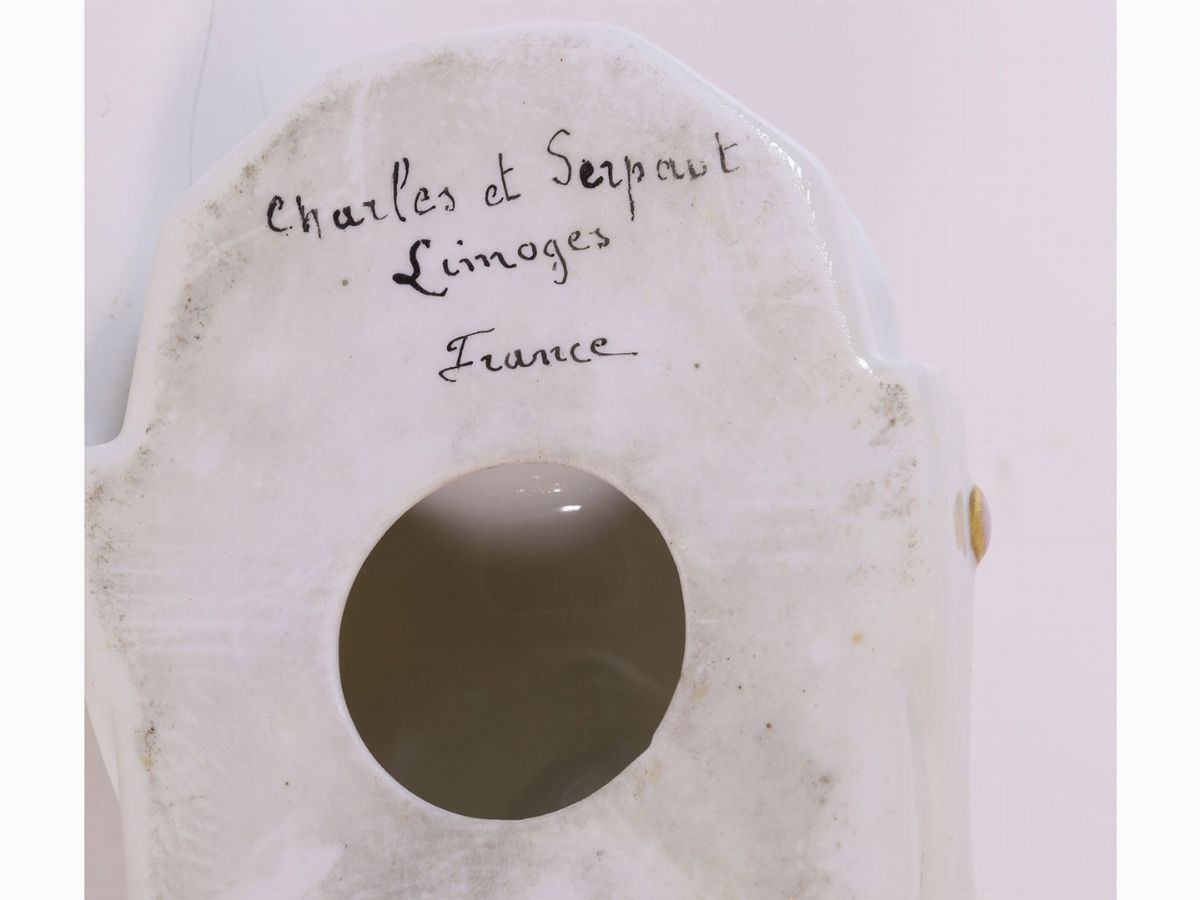 Charles et Serpaut
Limoges
France